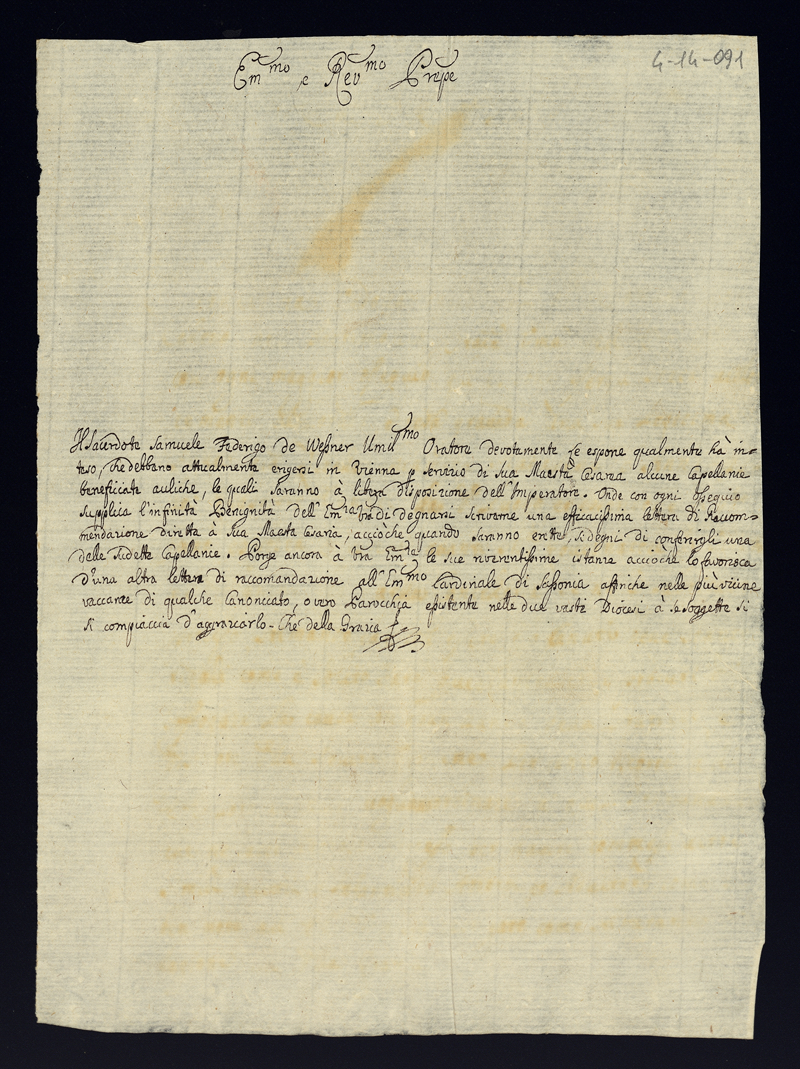 4-14-091
Em.mo e Rev.mo Prnpe
Il Sacerdote Samuele Federigo de Weßner Umil.mo Oratore devotamente Le espone qualmente hà in=
teso, che debbano attualmente ergersi in Vienna p servizio di Sua Maestà Cesarea alcune Capellanie
beneficiate auliche, le quali saranno à libera disposizione dell'Imperatore. Onde con ogni ossequio
supplica l'infinita Benignità dell'Em.za Vra di degnarsi scriverne una efficacissima lettera di Raccom=
mendazione diretta à Sua Maestà Cesarea, acciòche quando saranno erette, si degni di conferirgli una
delle sudette Capellanie. Porge ancora à Vra Em.za le sue riverentissime istanze acciòche lo favorisca
d'una altra lettera di raccomandazione all'Em.mo Cardinale di Sassonia affinche nelle più vicine
vaccanze di qualche Canonicato, overo Parocchia esistente nelle due vasti Diocesi à se soggette si
si compiaccia d'aggraziarlo. Che della Grazia